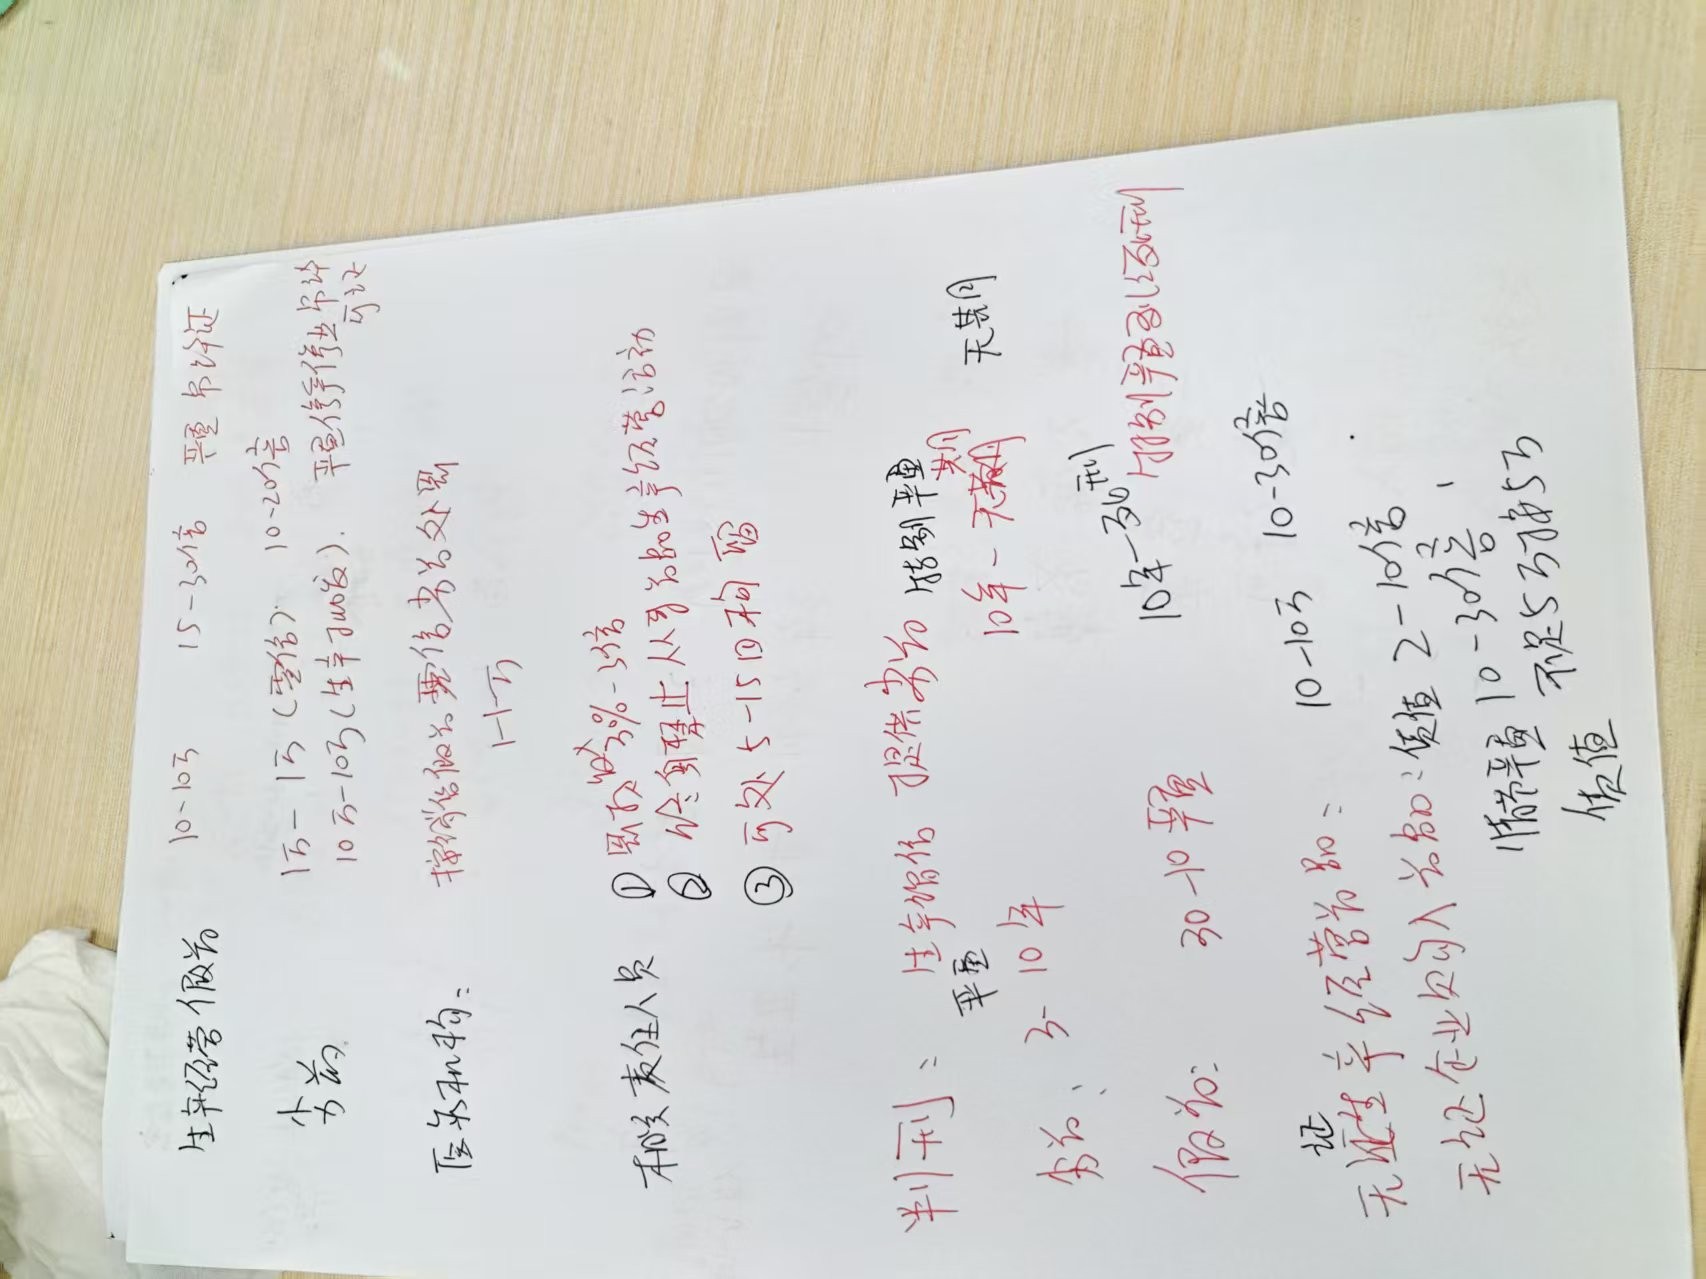 生产经营假药 10-10万 15-30倍 严重 吊许证
劣药 1万-1万(零售) 10-20倍
10万-10万(生产批发). 严重停产停业吊许可证
医疗机构: 按销售假药零售劣药处罚
1-1万
相关责任人员 ① 罚款30%-3倍
② 终身禁止从事药品生产经营活动
③ 可处5-15日拘留
判刑: 生产销售 提供劣药 特别严重 无期
严重
劣药: 3-10年 10年-无期
假药: 3-10严重 10年-死刑 特别严重死刑
证
无证生产经营药品: 10-10万 10-30倍
无证企业购入药品: 货值2-10倍
情节严重10-30倍
货值不足5万按5万